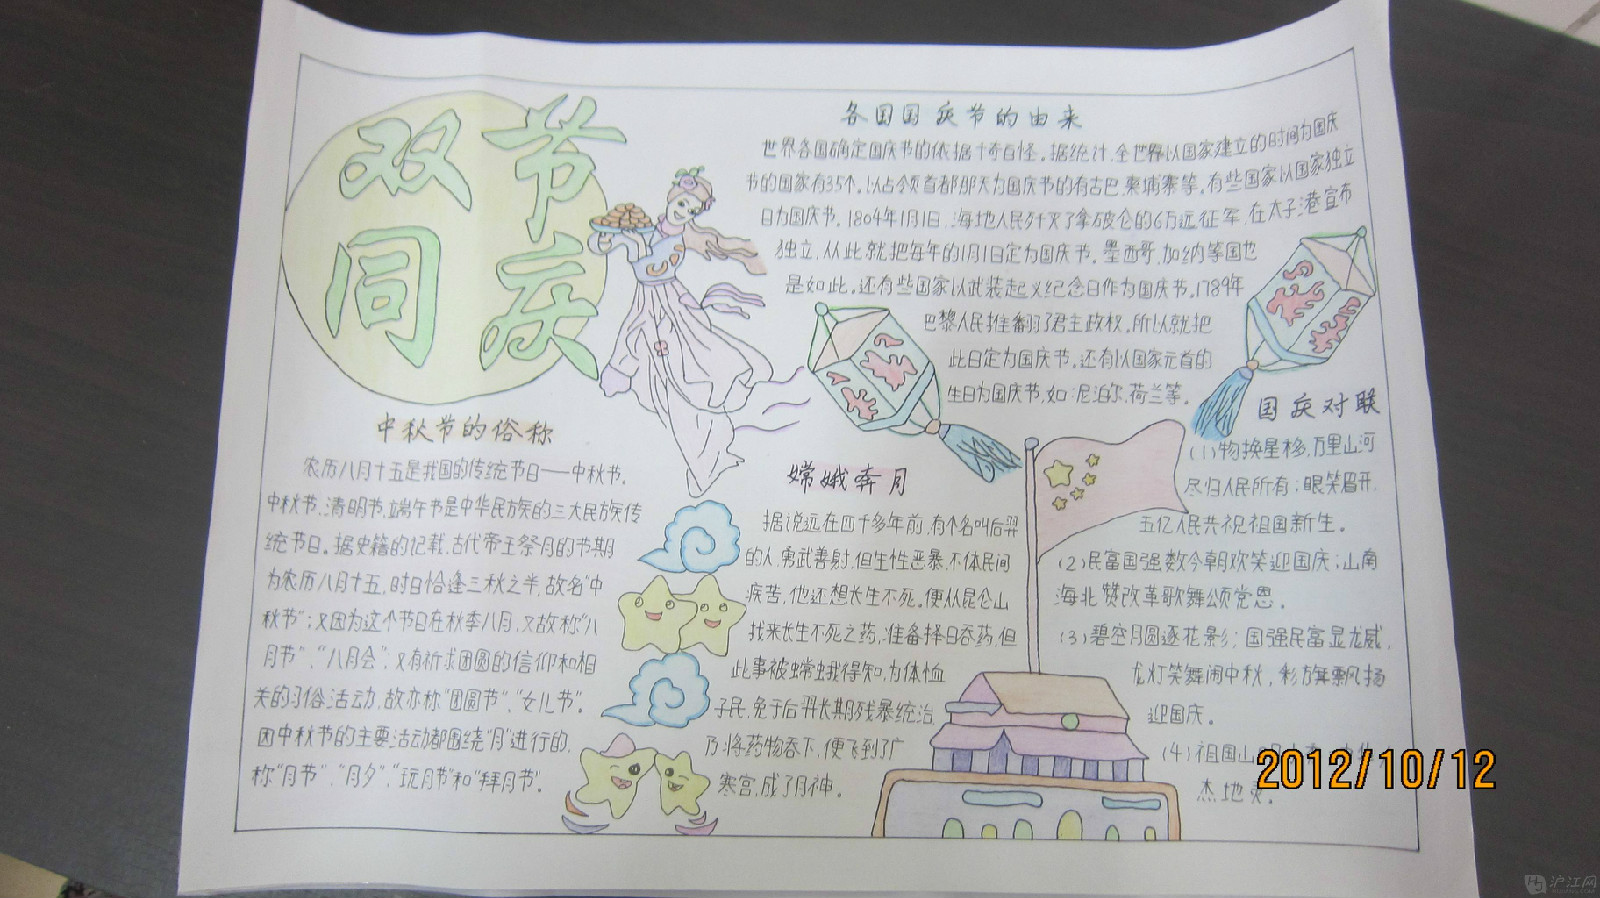 双节
同庆
各国国庆节的由来
世界各国确定国庆节的依据千奇百怪。据统计,全世界以国家建立的时间为国庆
节的国家有35个。以占领首都那天为国庆节的有古巴、柬埔寨等。有些国家以国家独立
日为国庆节。1804年1月1日,海地人民歼灭了拿破仑的6万远征军,在太子港宣布
独立,从此就把每年的1月1日定为国庆节。墨西哥、加纳等国也
是如此。还有些国家以武装起义纪念日作为国庆节。1789年
巴黎人民推翻了君主政权。所以就把
此日定为国庆节。还有以国家元首的
生日为国庆节,如:尼泊尔、荷兰等。
中秋节的俗称
农历八月十五是我国的传统节日——中秋节。
中秋节、清明节、端午节是中华民族的三大民族传
统节日。据史籍的记载,古代帝王祭月的节期
为农历八月十五,时日恰逢三秋之半,故名“中
秋节”;又因为这个节日在秋季八月,又故称“八
月节”、“八月会”;又有祈求团圆的信仰和相
关的习俗活动,故亦称“团圆节”、“女儿节”。
因中秋节的主要活动都围绕“月”进行的,
称“月节”、“月夕”、“玩月节”和“拜月节”。
嫦娥奔月
据说远在四千多年前,有个名叫后羿
的人,勇武善射,但生性恶暴,不体民间
疾苦,他还想长生不死。便从昆仑山
找来长生不死之药,准备择日吞药,但
此事被嫦娥得知,为体恤
子民,免于后羿长期残暴统治,
乃将药物吞下,便飞到了广
寒宫,成了月神。
国庆对联
(1)物换星移,万里山河
尽归人民所有;眼笑眉开,
五亿人民共祝祖国新生。
(2)民富国强数今朝欢笑迎国庆;山南
海北赞改革歌舞颂党恩。
(3)碧空月圆逐花影;国强民富显龙威,
龙灯笑舞闹中秋,彩旗飘扬
迎国庆。
(4)祖国山
杰地灵。
2012/10/12
沪江网